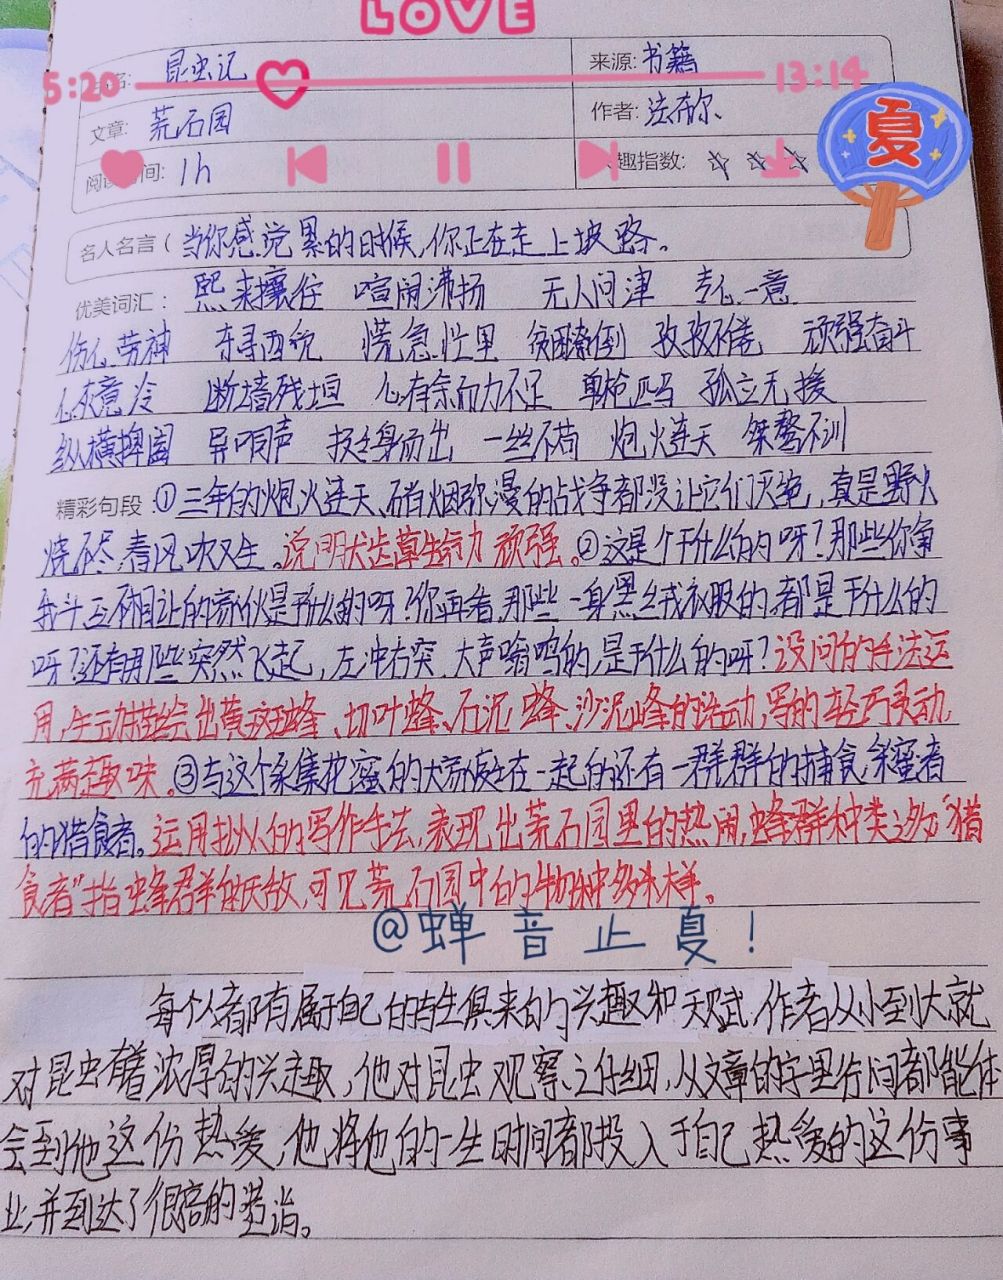 LOVE
书名: 昆虫记 来源: 书籍
5:20 13:14
文章: 荒石园 作者: 法布尔
夏
阅读时间: 1h 趣指数: ☆ ☆ ☆
名人名言 ( 当你感觉累的时候,你正在走上坡路。
优美词汇: 熙来攘往 喧闹沸扬 无人问津 专心一意
伤心劳神 东寻西觅 慌急忙里 贫困潦倒 孜孜不倦 顽强奋斗
心灰意冷 断墙残垣 心有余而力不足 单枪匹马 孤立无援
纵横捭阖 异口同声 挺身而出 一丝不苟 炮火连天 桀骜不训
精彩句段: ①三年的炮火连天、硝烟弥漫的战争都没让它们灭绝,真是野火
烧不尽,春风吹又生。说明犬齿草生命力顽强。②这是个干什么的呀?那些你争
我斗互不相让的家伙是干什么的呀?你再看,那些一身黑绒衣服的都是干什么的
呀?还有那些突然飞起,左冲右突,大声嗡鸣的,是干什么的呀?设问的手法运
用,生动描绘出黄斑蜂、切叶蜂、石泥蜂、沙泥蜂的活动,写的轻巧灵动,
充满趣味。③与这个采集花蜜的大家庭在一起的还有一群群的捕食采蜜者
的猎食者。运用拟人的写作手法,表现出荒石园里的热闹,蜂群种类之多。“猎
食者”指蜂群的天敌,可见荒石园中的物种多种多样。
@蝉音止夏!
每个人都有属于自己的与生俱来的兴趣和天赋,作者从小到大就
对昆虫有着浓厚的兴趣,他对昆虫观察之仔细,从文章的字里行间都能体
会到他这份热爱,他将他的一生时间都投入于自己热爱的这份事
业,并到达了很高的造诣。